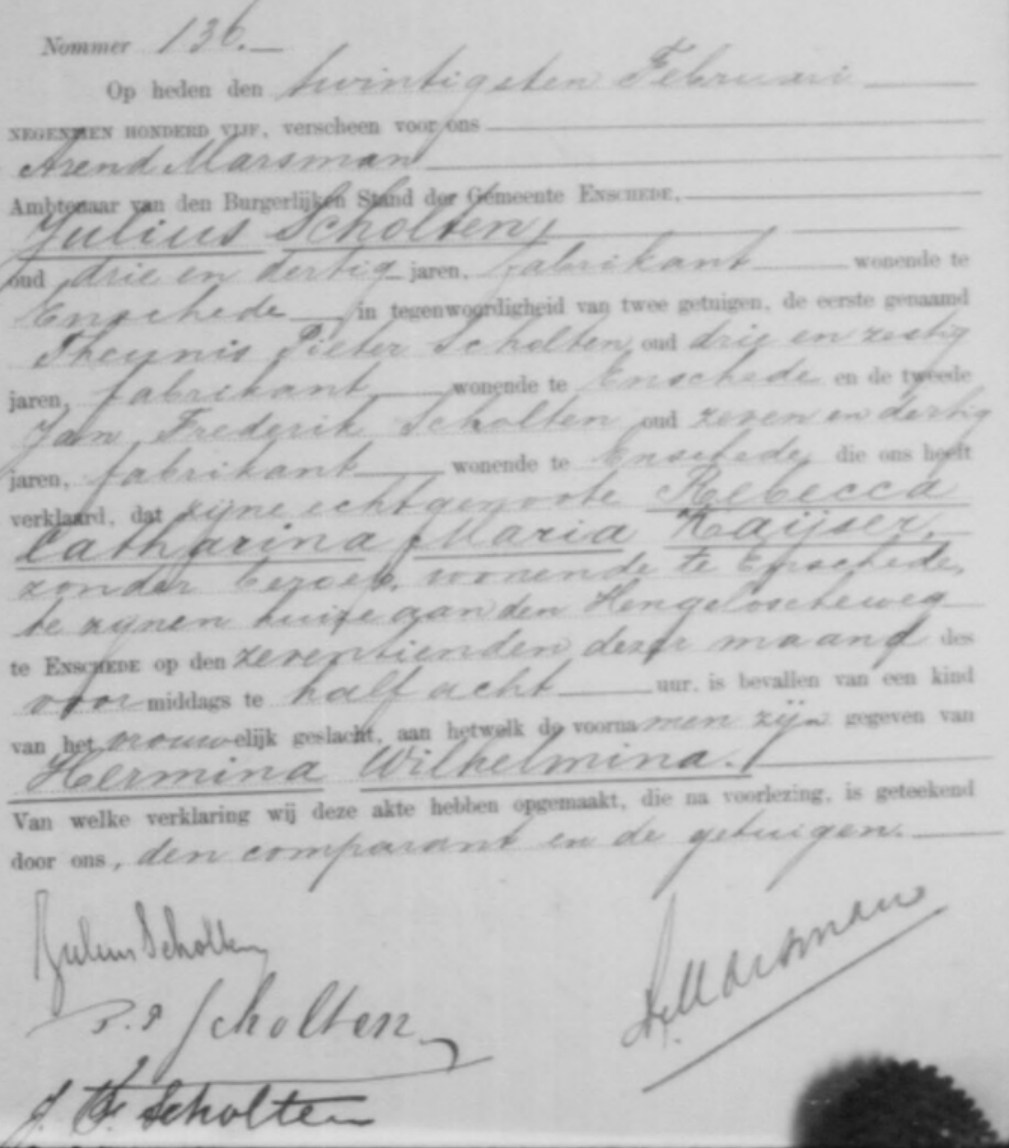 Nommer 136.
Op heden den twintigsten Februari
NEGENTIEN HONDERD VIJF, verscheen voor ons
Arend Marsman
Ambtenaar van den Burgerlijken Stand der Gemeente ENSCHEDE,
Julius Scholten,
oud drie en dertig jaren, fabrikant wonende te
Enschede in tegenwoordigheid van twee getuigen, de eerste genaamd
Theunis Pieter Scholten oud drie en zestig
jaren, fabrikant wonende te Enschede en de tweede
Jan Frederik Scholten oud zeven en dertig
jaren, fabrikant wonende te Enschede, die ons heeft
verklaard, dat zijne echtgenoote Rebecca
Catharina Maria Kaijser,
zonder beroep, wonende te Enschede,
te zijnen huize aan den Hengeloscheweg
te ENSCHEDE op den zeventienden dezer maand des
voormiddags te half acht uur, is bevallen van een kind
van het vrouwelijk geslacht, aan hetwelk de voornamen zijn gegeven van
Hermina Wilhelmina.
Van welke verklaring wij deze akte hebben opgemaakt, die na voorlezing, is geteekend
door ons, den comparant en de getuigen.
Julius Scholten
A. Marsman
T. P Scholten
J. F. Scholten